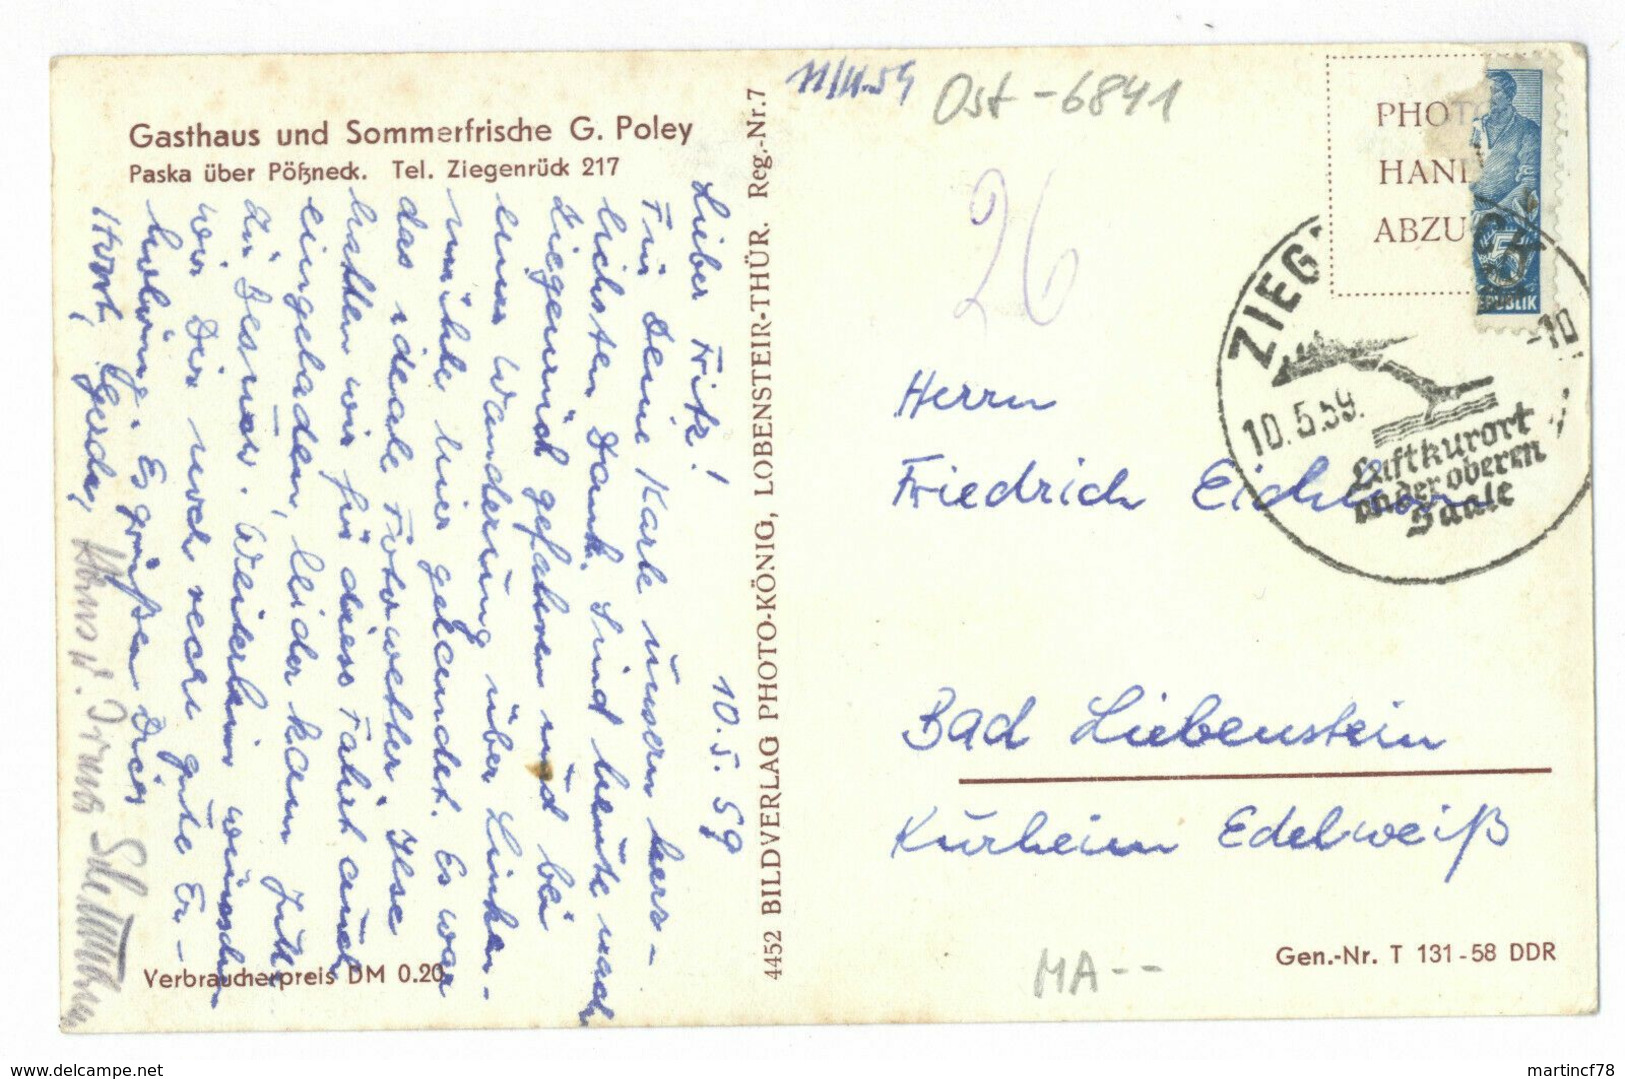 Gasthaus und Sommerfrische G. Poley
Paska über Pößneck. Tel. Ziegenrück 217
11/V.59
Ost-6841
26
PHOT
HAN
ABZU
5
REPUBLIK
ZIEG
-10
10.5.59.
Luftkurort
an der oberen
Saale
10. 5. 59
Lieber Fritz!
Für Deine Karte unsern herz-
lichsten Dank. Sind heute nach
Ziegenrück gefahren und bei
einer Wanderung über Linken-
mühle hier gelandet. Es war
das ideale Fotowetter. Ilse
hatten wir für diese Fahrt auch
eingeladen, leider kam Jutta
zu Besuch. Weiterhin wünschen
wir Dir noch recht gute Er-
holung. Es grüßen Dich
Horst, Gerda,
u. Irma
4452 BILDVERLAG PHOTO-KÖNIG, LOBENSTEIR-THÜR. Reg.-Nr. 7
Herrn
Friedrich
Bad Liebenstein
Kurheim Edelweiß
Verbraucherpreis DM 0.20
MA--
Gen.-Nr. T 131-58 DDR
www.delcampe.net
martincf78